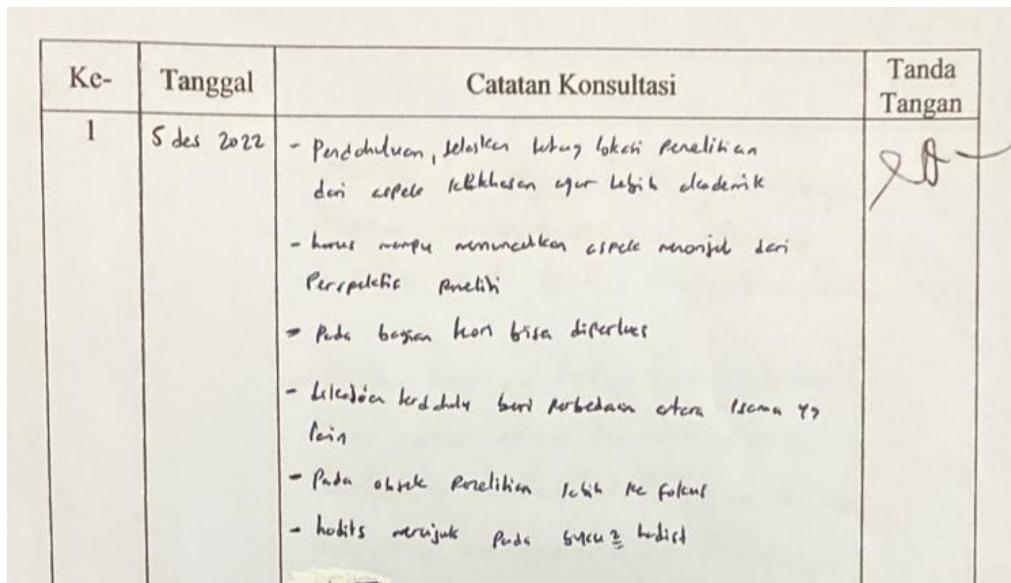 Ke- Tanggal Catatan Konsultasi Tanda Tangan
1 5 des 2022 - Pendahuluan, jelaskan tentang lokasi penelitian
dari aspek kekhasan agar lebih akademik
- harus mampu memunculkan aspek menonjol dari
Perspektif peneliti
- Pada bagian teori bisa diperluas
- terdahulu beri perbedaan antara 1 sama yg
lain
- Pada objek penelitian lebih ke fokus
- hadits merujuk pada buku2 hadist